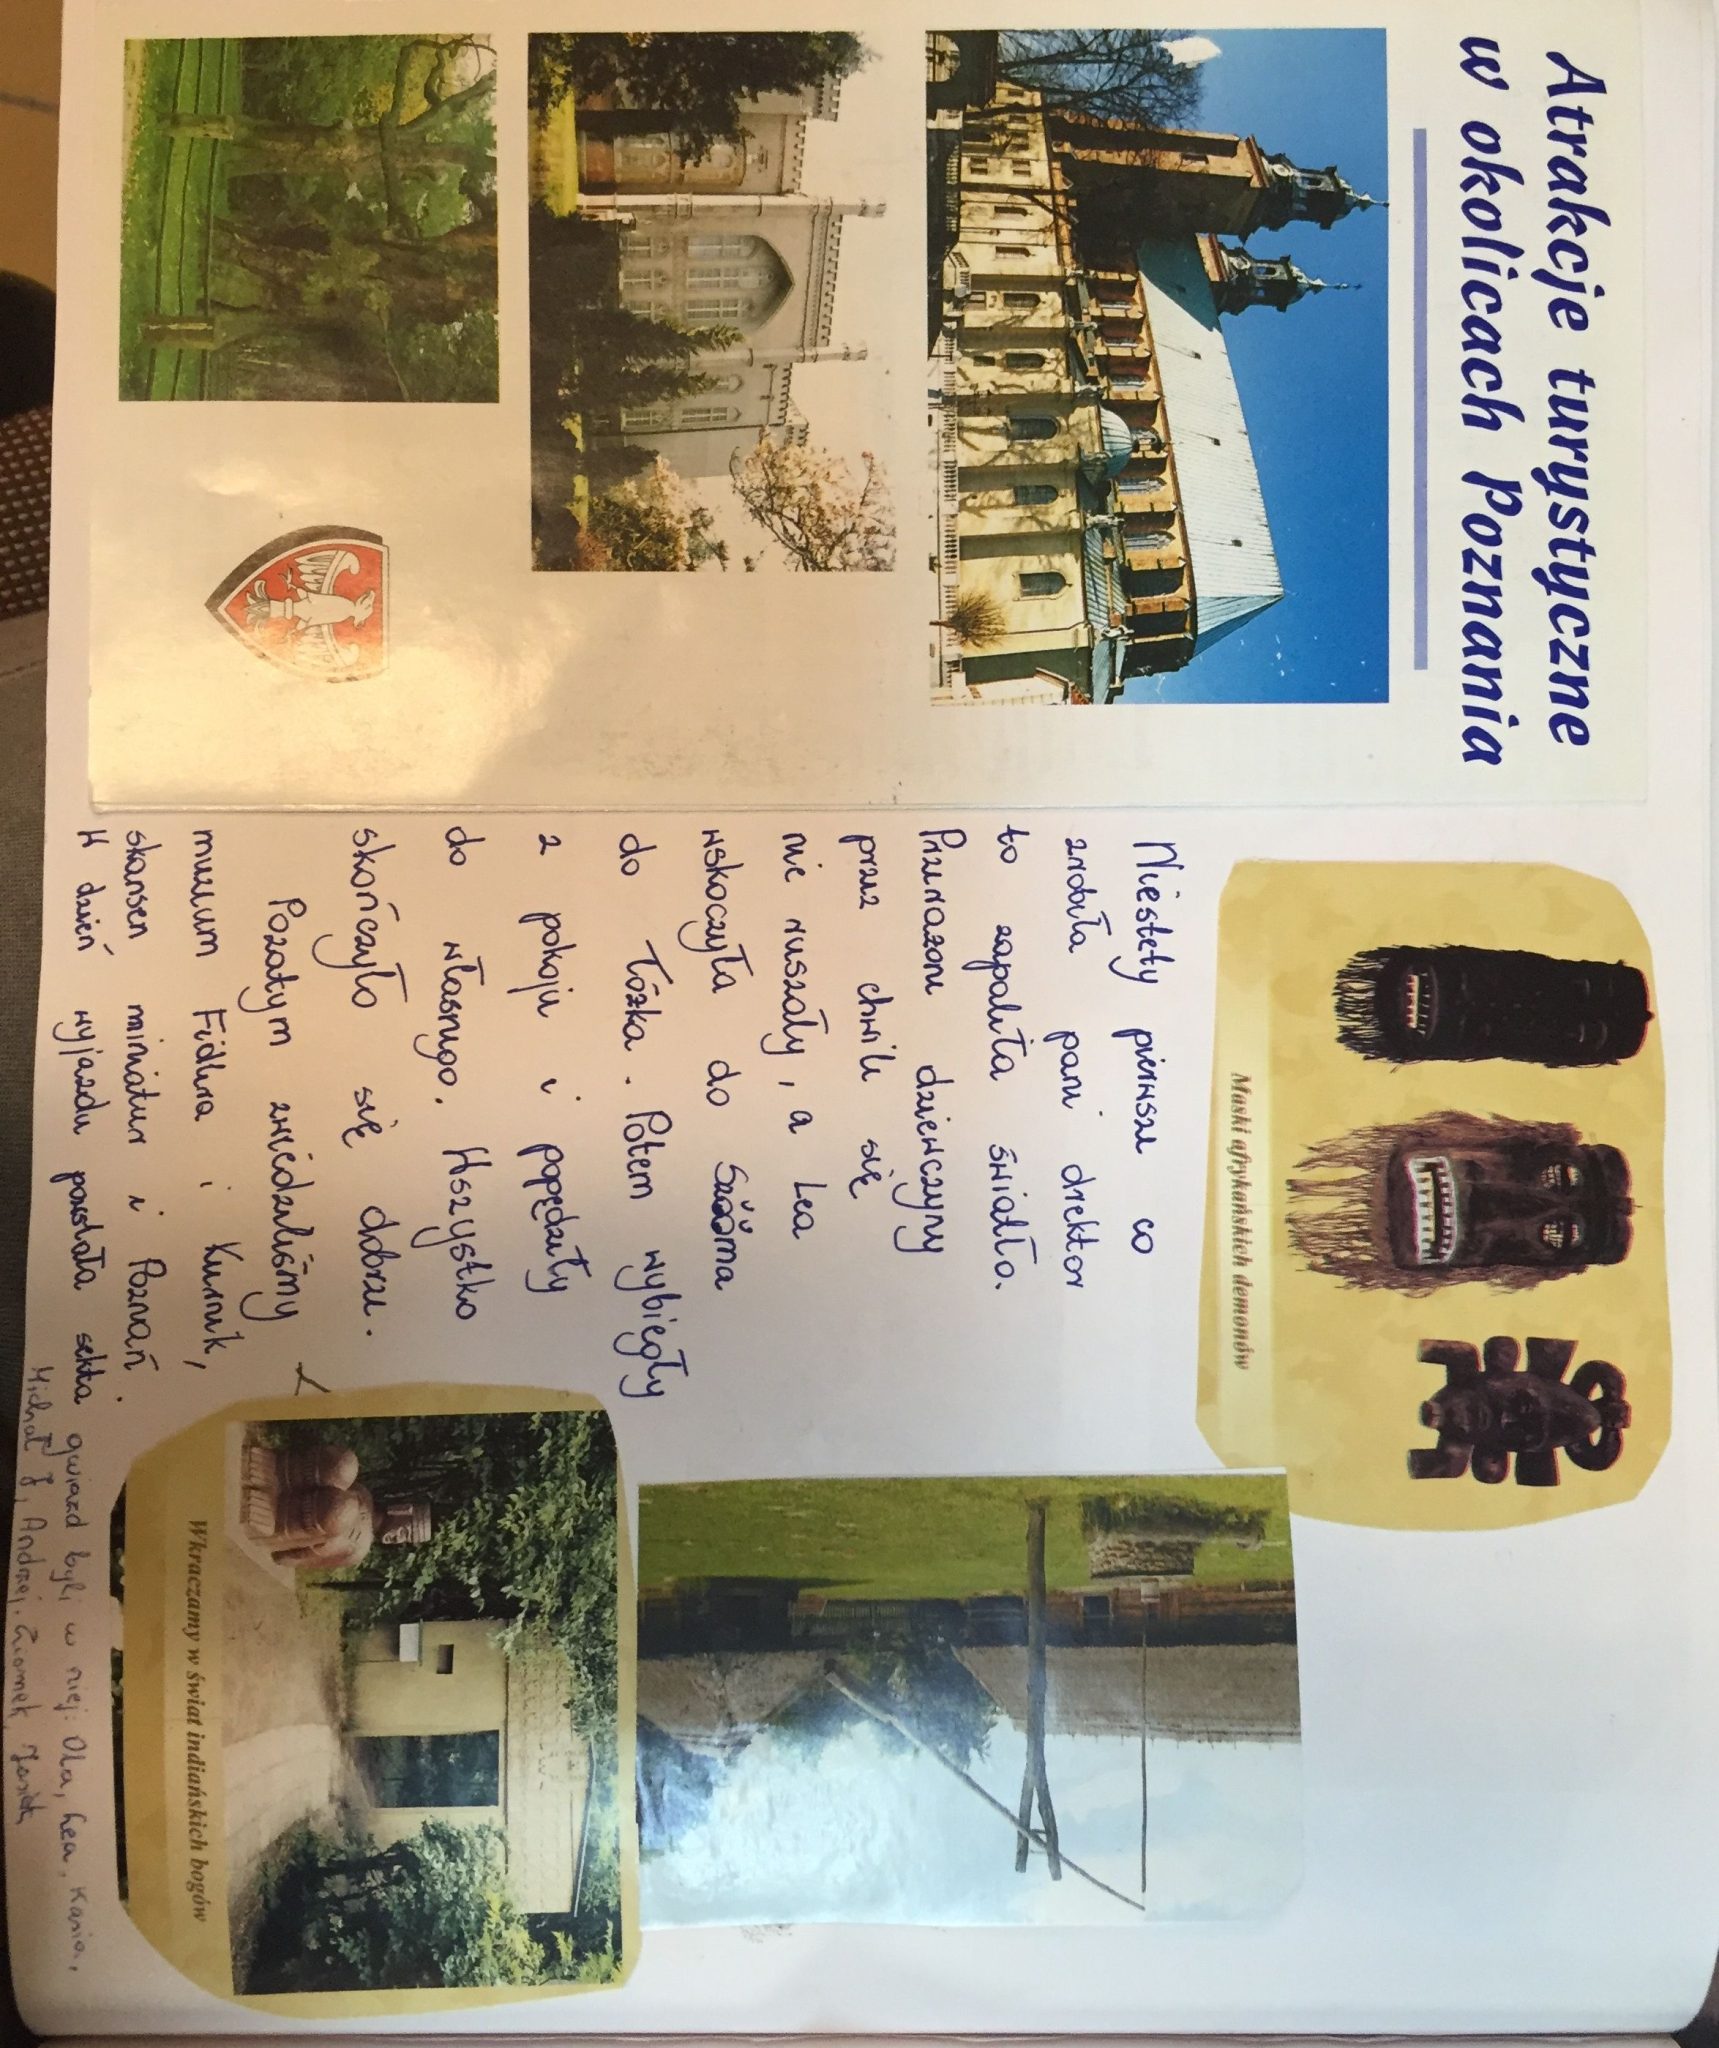 Atrakcje turystyczne
w okolicach Poznania
Maski afrykańskich demonów
Niestety pierwsze co
zrobiła pani direktor
to zapaliła światło.
Przerażone dziewczyny
przez chwile się
nie ruszały, a Lea
wskoczyła do
do łóżka. Potem wybiegły
z pokoju i popędziły
do własnego. Wszystko
skończyło się dobrze.
Pozatym zwiedziliśmy
muzeum Fidlera i Kurnik,
skansen miniatur i Poznań.
W dzień wyjazdu powstała sekta gwiazd byli w niej: Ola, Lea, Kasia,
Michał J, Andrzej. Ziomek, Jasiek
Wkraczamy w świat indiańskich bogów